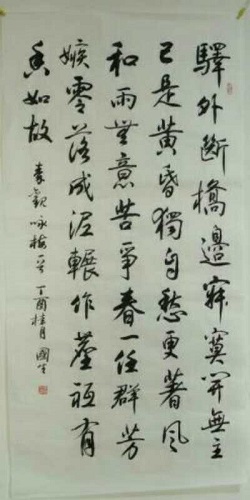 驛外斷橋邊寂寞開無主
已是黃昏獨自愁更著風
和雨無意苦爭春一任群芳
嫉零落成泥輾作塵祗有
香如故
咏梅一首 丁酉桂月 國